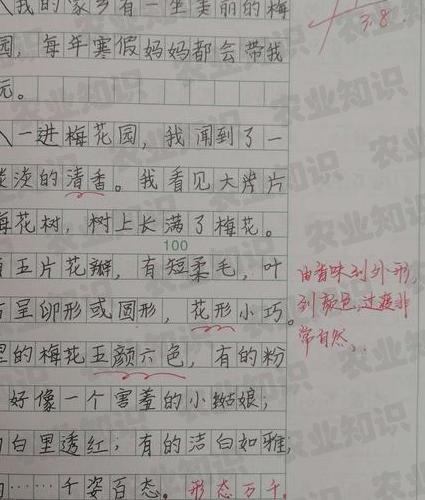 我的家乡有一座美丽的梅
3.8
园，每年寒假妈妈都会带我
一进梅花园，我闻到了一
淡的清香。我看见大片片
梅花树，树上长满了梅花。
100
五片花瓣，有短柔毛，叶
呈卵形或圆形，花形小巧。
由香味到外形，
到颜色，过渡非
常自然。
的梅花五颜六色，有的粉
好像一个害羞的小姑娘；
白里透红；有的洁白如雅，
……千姿百态。形态万千
农业知识